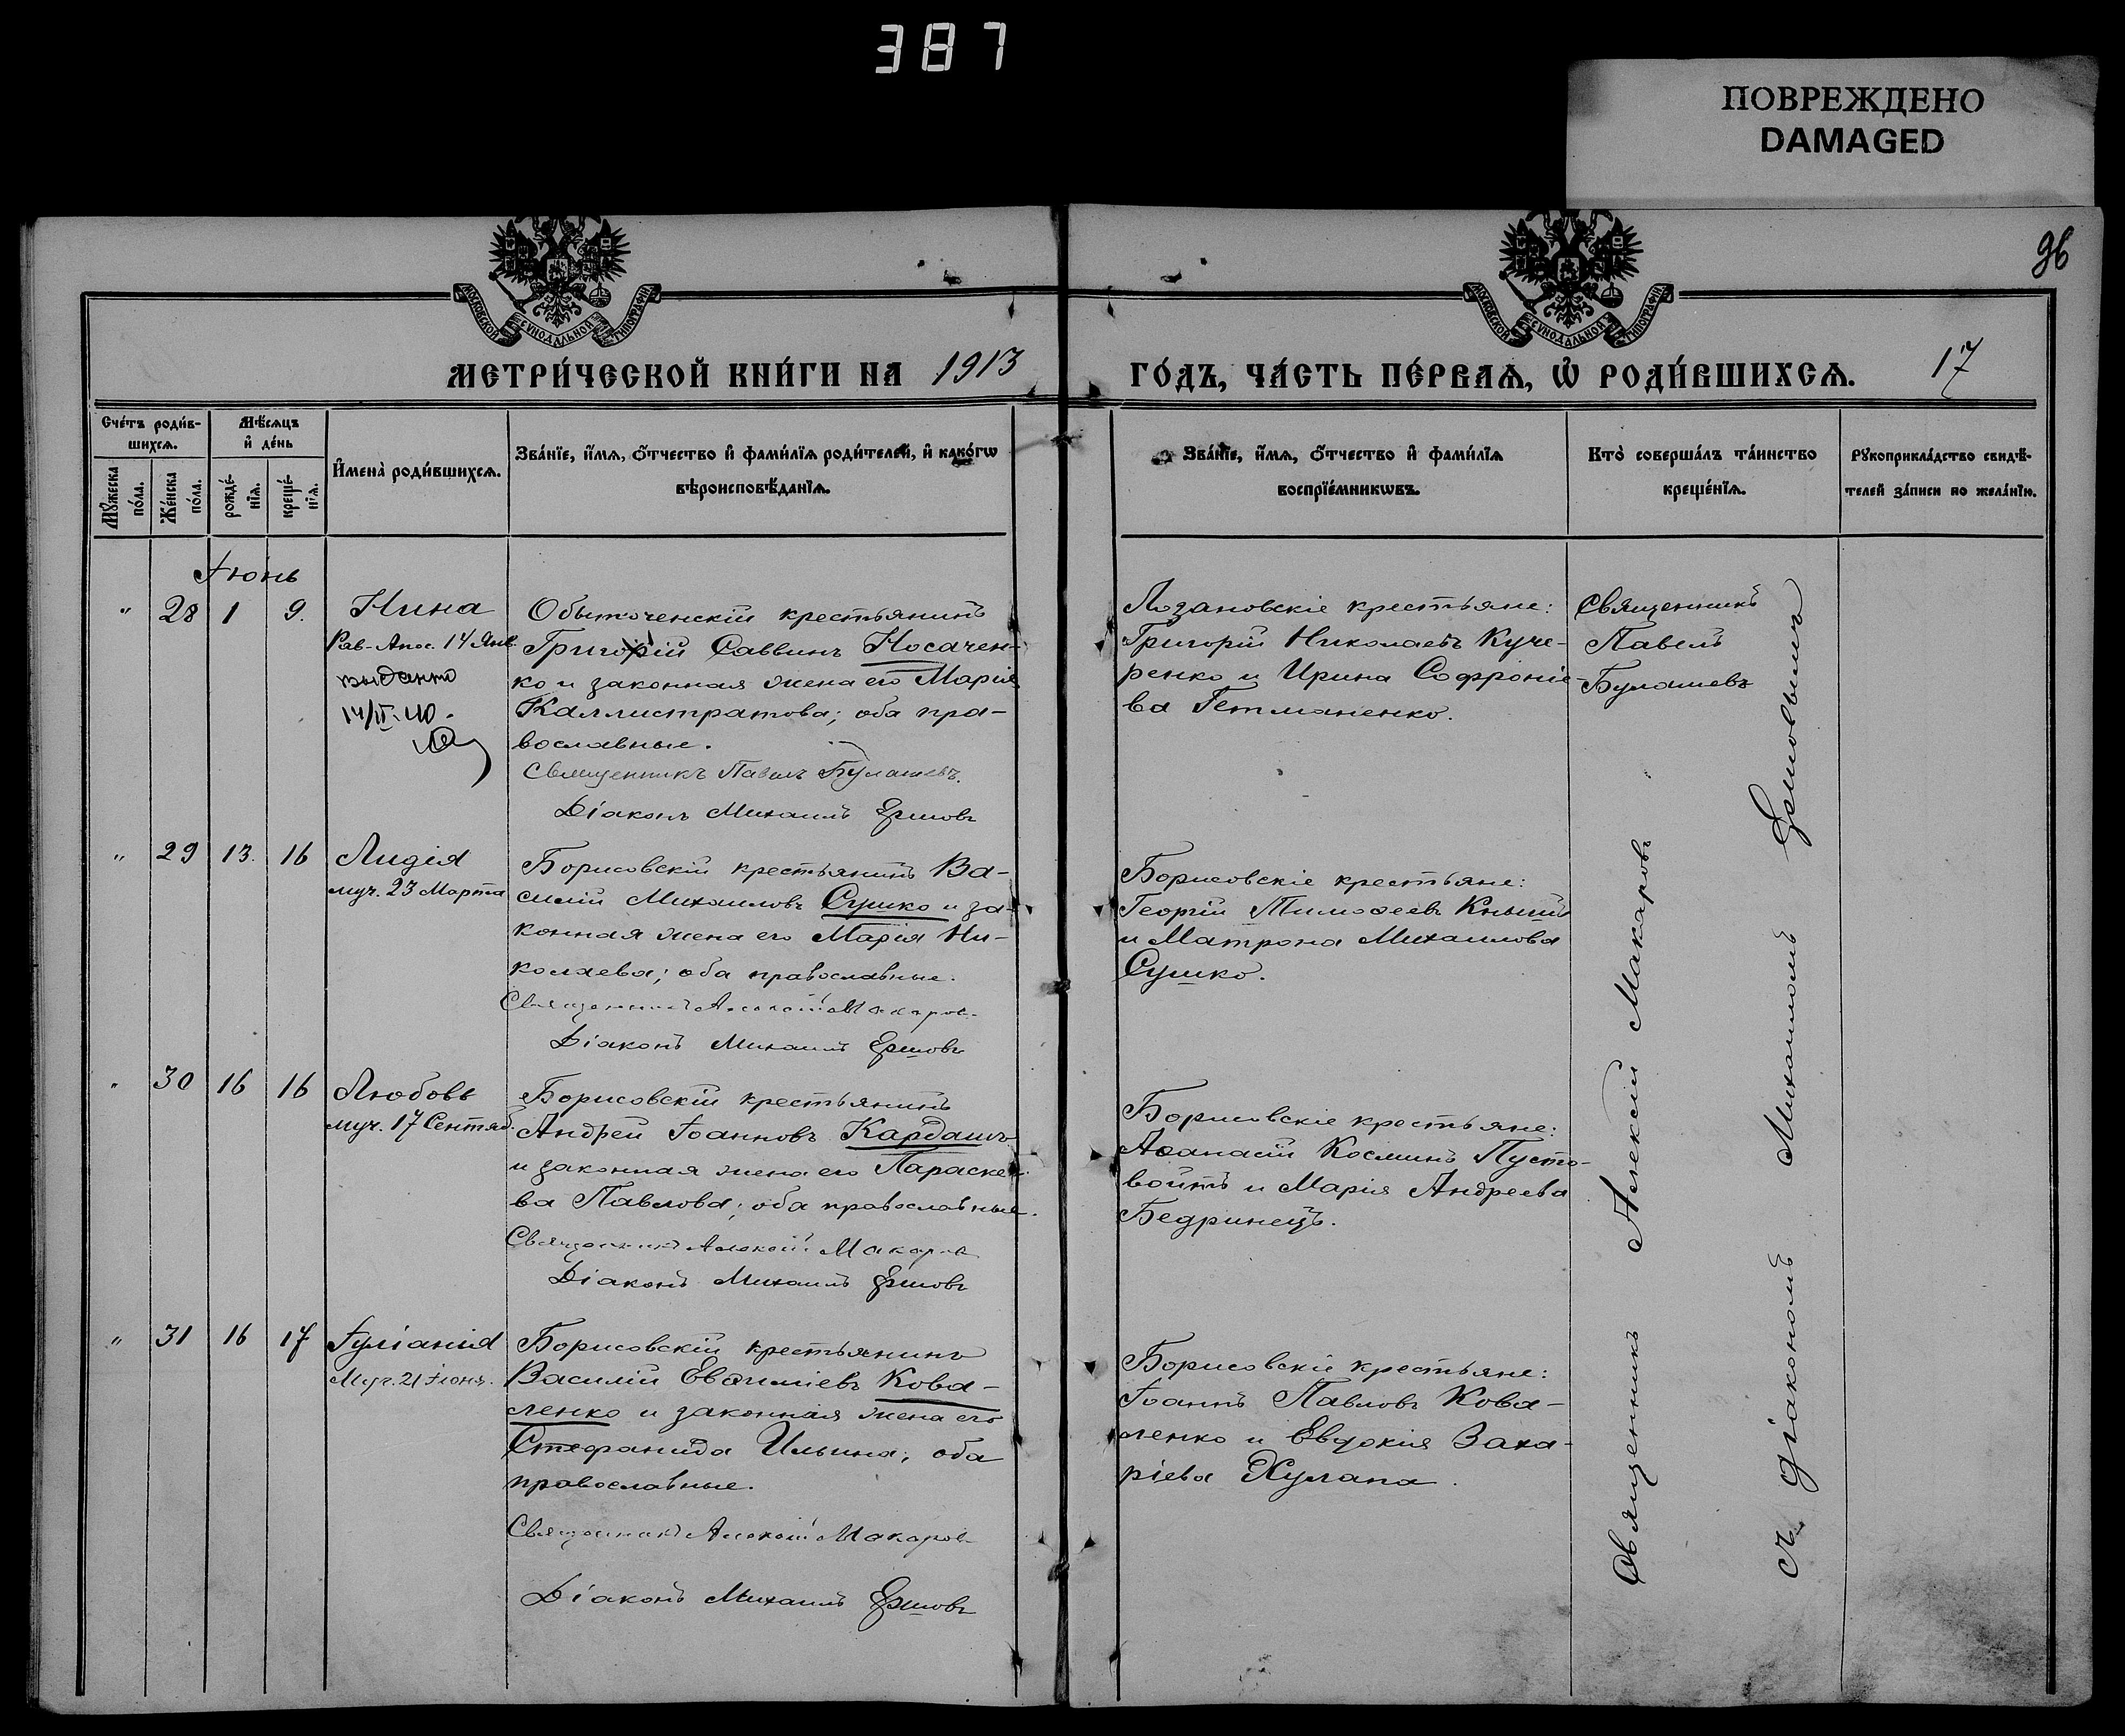 387
ПОВРЕЖДЕНО
DAMAGED
96
МОСКОВСКОЙ СѴНОДАЛЬНОЙ ТИПОГРАФІИ
МОСКОВСКОЙ СѴНОДАЛЬНОЙ ТИПОГРАФІИ
МЕТРИ́ЧЕСКОЙ КНИ́ГИ НА 1913
ГО́ДЪ, ЧА́СТЬ ПЕ́РВАѦ, Ѡ҆ РОДИ́ВШИХСѦ. 17
Сче́тъ роди́в-
шихсѧ.
Мѣ́сѧцъ
и҆ де́нь
Мꙋ́жеска
по́ла.
Же́нска
по́ла.
рожде́-
нїѧ.
креще́-
нїѧ.
И҆мена̀ роди́вшихсѧ.
Зва́нїе, и҆́мѧ, ѻ҆́тчество и҆ фами́лїѧ роди́телей, и҆ како́гѡ
вѣроисповѣ́данїѧ.
Зва́нїе, и҆́мѧ, ѻ҆́тчество и҆ фами́лїѧ
воспрїе́мникѡвъ.
Кто̀ соверша́лъ та́инство
креще́нїѧ.
Рꙋкоприкла́дство свидѣ́-
телей за́писи по жела́нїю.
Іюнь
" 28 1 9. Нина
Рав-Апос. 14 Янв.
выдано
14/II-40.
Обыточенскій крестьянинъ
Григорій Саввинъ Носачен-
ко и законная жена его Марія
Каллистратова; оба пра-
вославные.
Священникъ Павелъ Булашевъ.
Діаконъ Михаилъ Ершовъ
Лозановскіе крестьяне:
Григорій Николаевъ Куче-
ренко и Ирина Софроніе-
ва Гетманенко.
Священникъ
Павелъ
Булашевъ
" 29 13. 16 Лидія
муч. 23 Марта
Борисовскій крестьянинъ Ва-
силій Михаиловъ Сушко и за-
конная жена его Марія Ни-
колаева; оба православные.
Священникъ Алексій Макаров
Діаконъ Михаилъ Ершовъ
Борисовскіе крестьяне:
Георгій Тимоѳеевъ Кнышъ
и Матрона Михаилова
Сушко.
" 30 16 16 Любовь
муч. 17 Сентяб.
Борисовскій крестьянинъ
Андрей Іоанновъ Кардашъ
и законная жена его Параске-
ва Павлова; оба православные.
Священникъ Алексій Макаров
Діаконъ Михаилъ Ершовъ
Борисовскіе крестьяне:
Аѳанасій Косминъ Пусто-
войтъ и Марія Андреева
Бедринецъ.
" 31 16 17 Іуліанія
Муч. 21 Іюня.
Борисовскій крестьянинъ
Василій Евѳиміевъ Кова-
ленко и законная жена его
Стефанида Ильина; оба
православные.
Священникъ Алексій Макаров
Діаконъ Михаилъ Ершовъ
Борисовскіе крестьяне:
Іоаннъ Павловъ Кова-
ленко и Евдокія Заха-
ріева Жулана.
Священникъ Алексій Макаровъ
съ діакономъ Михаиломъ Ершовымъ